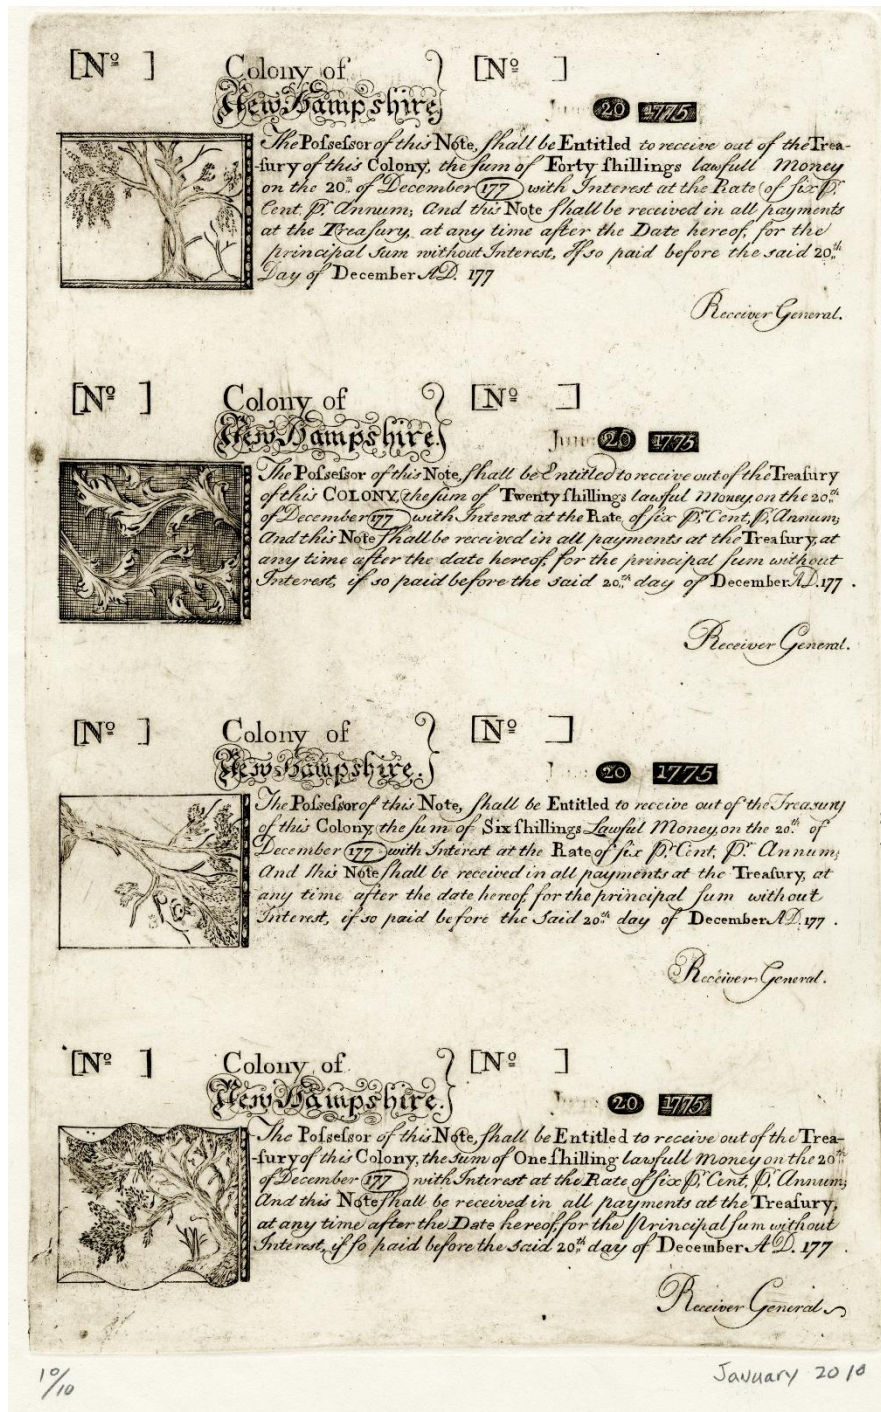 [Nº ] Colony of [Nº ]
New Hampshire 20 1775
The Poſseſsor of this Note, ſhall be Entitled to receive out of the Trea-
-ſury of this Colony, the ſum of Forty ſhillings lawfull Money
on the 20th of December 177 with Interest at the Rate of ſix Pr.
Cent, Pr. Annum; And this Note ſhall be received in all payments
at the Treaſury, at any time after the Date hereof, for the
principal ſum without Interest, If so paid before the said 20th
Day of December A.D. 177
Receiver General.
[Nº ] Colony of [Nº ]
New Hampshire. June 20 1775
The Poſseſsor of this Note, ſhall be Entitled to receive out of the Treaſury
of this COLONY, the ſum of Twenty ſhillings lawful Money, on the 20th
of December 177 with Interest at the Rate of ſix Pr. Cent, Pr. Annum;
And this Note ſhall be received in all payments at the Treaſury, at
any time after the date hereof, for the principal ſum without
Interest, if so paid before the said 20th day of December A.D. 177 .
Receiver General.
[Nº ] Colony of [Nº ]
New Hampshire. 20 1775
The Poſseſsor of this Note, ſhall be Entitled to receive out of the Treaſury
of this Colony, the ſum of Six ſhillings Lawful Money, on the 20th of
December 177 with Interest at the Rate of ſix Pr. Cent, Pr. Annum;
And this Note ſhall be received in all payments at the Treaſury, at
any time after the date hereof, for the principal ſum without
Interest, if so paid before the Said 20th day of December A.D. 177 .
Receiver General.
[Nº ] Colony of [Nº ]
New Hampshire. 20 1775
The Poſseſsor of this Note, ſhall be Entitled to receive out of the Trea-
-ſury of this Colony, the ſum of One ſhilling lawfull Money on the 20th
of December 177 with Interest at the Rate of ſix Pr. Cent, Pr. Annum;
And this Note ſhall be received in all payments at the Treaſury,
at any time after the Date hereof, for the Principal ſum without
Interest, if ſo paid before the said 20th day of December A.D. 177 .
Receiver General
10/10 January 2010